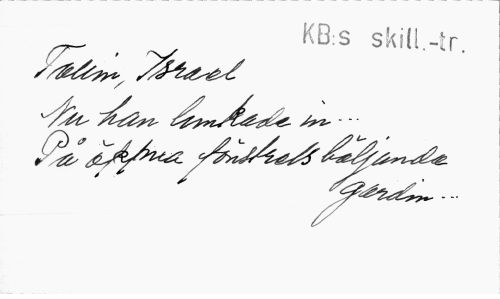 KB:s skill.-tr.
Tolim, Israel
Nu han lunkade in...
På öppna fönstrets böljande
gardin...